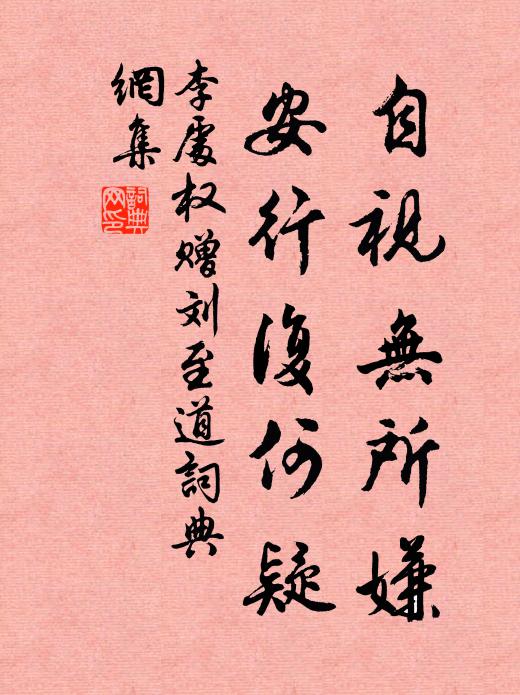 自視無所嫌
安行復何疑
李處权赠刘至道詞典
網集
詞典
网印